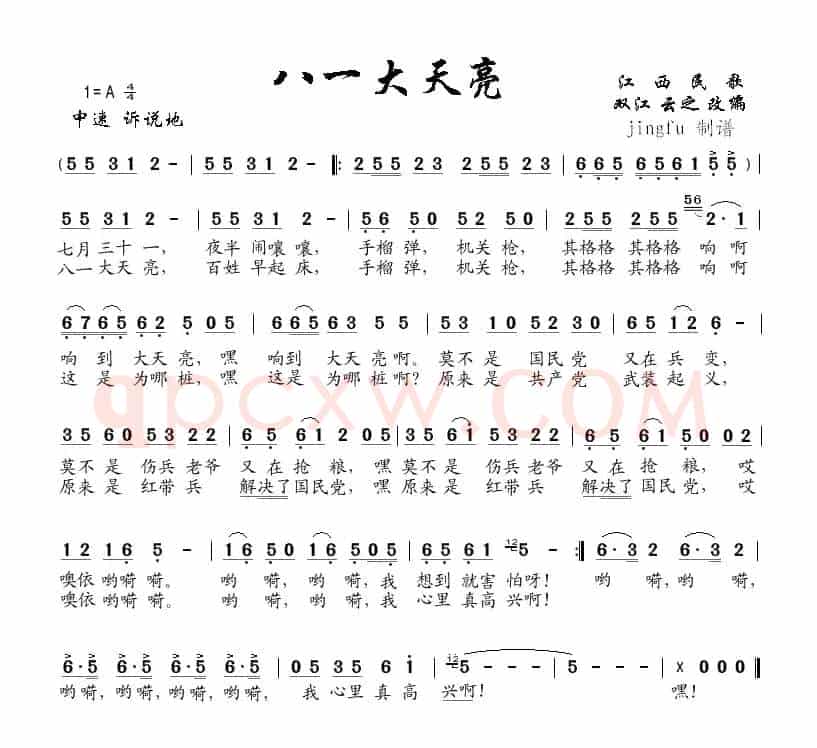 八一大天亮
1=A 4/4
江西民歌
双江 云之 改编
中速 诉说地
jingfu 制谱
(5 5 3 1 2 - | 5 5 3 1 2 - ‖: 2 5 5 2 3 2 5 5 2 3 | 6 6 5 6 5 6 1 5 5 ) |
5 5 3 1 2 - | 5 5 3 1 2 - | 5 6 5 0 5 2 5 0 | 2 5 5 2 5 5 56 2 · 1 |
七月三十一, 夜半闹嚷嚷, 手榴弹, 机关枪, 其格格 其格格 响啊
八一大天亮, 百姓早起床, 手榴弹, 机关枪, 其格格 其格格 响啊
6 7 6 5 6 2 5 0 5 | 6 6 5 6 3 5 5 | 5 3 1 0 5 2 3 0 | 6 5 1 2 6 - |
响到 大天亮, 嘿 响到 大天亮啊。 莫不是 国民党 又在兵变,
这是 为哪桩, 嘿 这是 为哪桩啊? 原来是 共产党 武装起义,
qpcxw.COM
3 5 6 0 5 3 2 2 | 6 5 6 1 2 0 5 | 3 5 6 1 5 3 2 2 | 6 5 6 1 5 0 0 2 |
莫不是 伤兵老爷 又在抢粮, 嘿 莫不是 伤兵老爷 又在抢粮, 哎
原来是 红带兵 解决了国民党, 嘿 原来是 红带兵 解决了国民党, 哎
1 2 1 6 5 - | 1 6 5 0 1 6 5 0 5 | 6 5 6 1 12 5 - :‖ 6 · 3 0 2 6 · 5 3 |
噢依哟嗬嗬。 哟嗬, 哟嗬, 我 想到就害怕呀! 哟嗬, 哟嗬,
噢依哟嗬嗬。 哟嗬, 哟嗬, 我 心里真高兴啊!
6 · 5 6 · 5 | 6 · 5 6 · 5 6 · 5 6 · 5 | 0 5 3 5 6 1 | 12 5 - - - | 5 - - - | x 0 0 0 ‖
哟嗬, 哟嗬, 哟嗬, 哟嗬, 哟嗬, 哟嗬, 我心里真高 兴啊! 嘿!